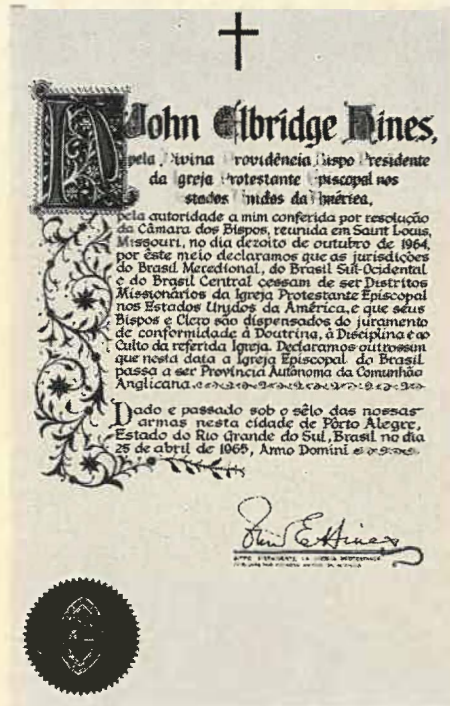 John Elbridge Hines,
pela Divina Providência Bispo Presidente
da Igreja Protestante Episcopal nos
Estados Unidos da América,
pela autoridade a mim conferida por resolução
da Câmara dos Bispos, reunida em Saint Louis,
Missouri, no dia dezoito de outubro de 1964,
por êste meio declaramos que as jurisdições
do Brasil Meredional, do Brasil Sul-Ocidental
e do Brasil Central cessam de ser Distritos
Missionários da Igreja Protestante Episcopal
nos Estados Unydos da América, e que seus
Bispos e Clero são dispensados do juramento
de conformidade à Doutrina, à Disciplina e ao
Culto da referida Igreja. Declaramos outrossim
que nesta data a Igreja Episcopal do Brasil
passa a ser Província Autônoma da Comunhão
Anglicana.
Dado e passado sob o sêlo das nossas
armas nesta cidade de Pôrto Alegre,
Estado do Rio Grande do Sul, Brasil no dia
25 de abril de 1965, Anno Domini
John E. Hines